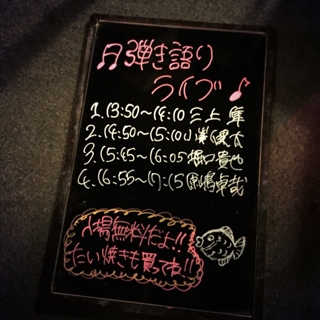 弾き語り
ライブ♪
1. 13:50〜14:10 三上 隼
2. 14:50〜15:10
3. 15:45〜16:05 堀口
4. 16:55〜17:15 卓哉
入場無料だよ!!
たい焼きも買ってね!!